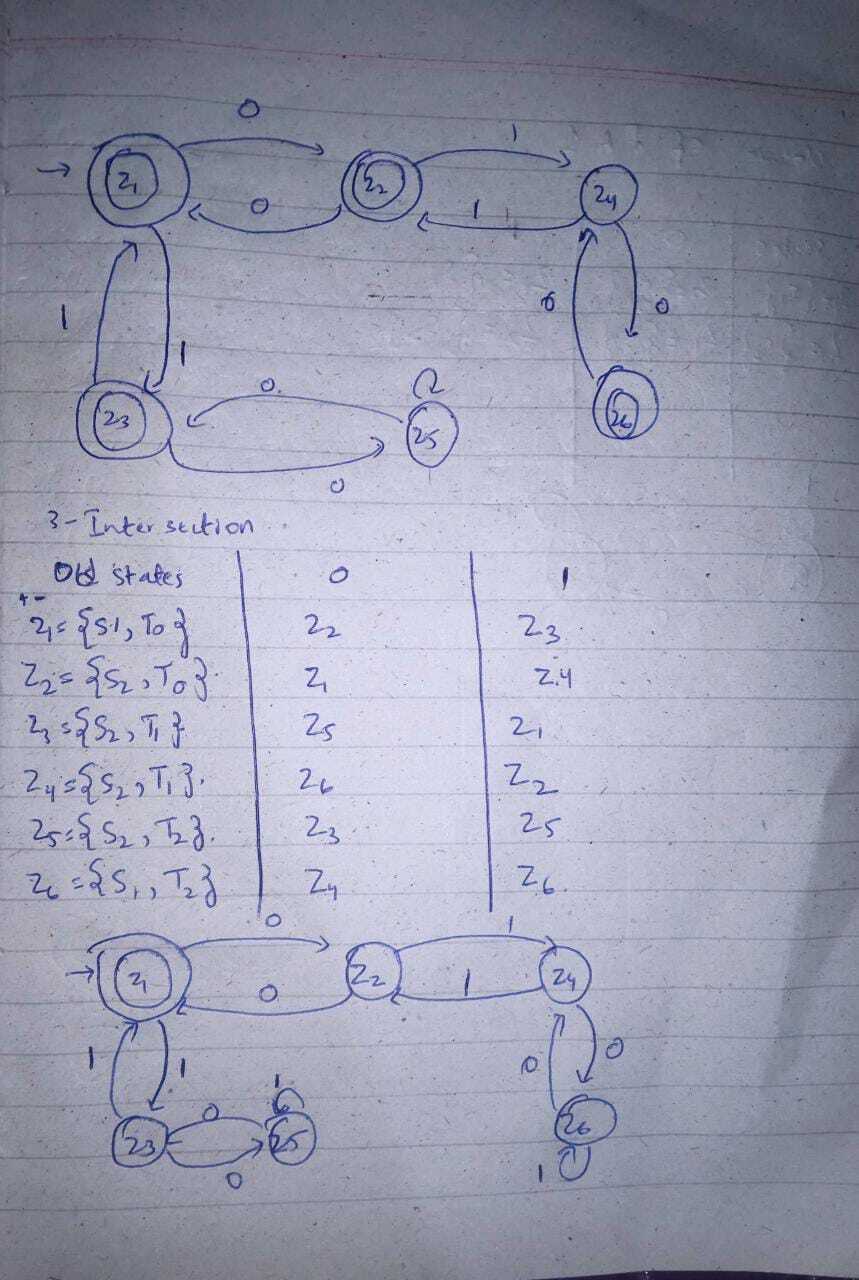 0
1
→ Z1 Z2 Z4
0 1
1 1 0 0
0
Z3 Z5 Z6
0
3- Intersection
Old states 0 1
+-
Z1= {S1, T0} Z2 Z3
Z2= {S2, T0} Z1 Z4
Z3= {S2, T1} Z5 Z1
Z4= {S2, T1}. Z6 Z2
Z5= {S2, T2}. Z3 Z5
Z6 = {S1, T2} Z4 Z6
0 1
→ Z1 Z2 Z4
0 1
1 1 0 0
0 1
Z3 Z5 Z6
0 1